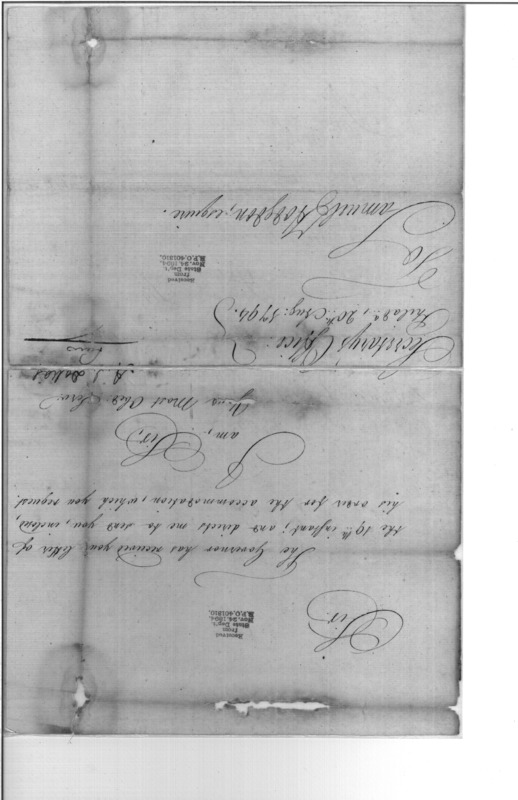 Sir
Received
from
State Dep't
Nov. 24, 1894.
R.P.O. 401810.
The Governor has received your letter of
the 19th instant, and directs me to send you, inclosed,
his order for the accommodation, which you request.
I
am, Sir,
Your Most Obed Serv.
A. J. Dallas
Secretary's Office.
Philada, 20th Aug: 1794.
Received
from
State Dep't
Nov. 24, 1894.
R.P.O. 401810.
To
Samuel Hodgdon, esquire.